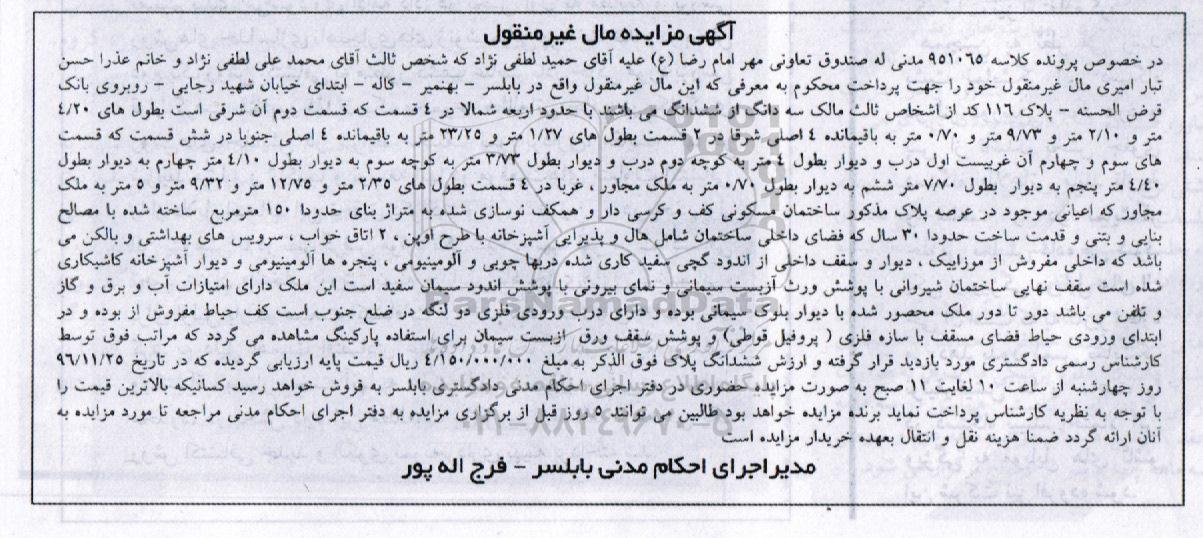 آگهی مزایده مال غیرمنقول
در خصوص پرونده کلاسه ۹۵۱۰۶۵ مدنی له صندوق تعاونی مهر امام رضا (ع) علیه آقای حمید لطفی نژاد که شخص ثالث آقای محمد علی لطفی نژاد و خانم عذرا حسن
تبار امیری مال غیرمنقول خود را جهت پرداخت محکوم به معرفی که این مال غیرمنقول واقع در بابلسر - بهنمیر - کاله - ابتدای خیابان شهید رجایی - روبروی بانک
قرض الحسنه - پلاک ۱۱۶ کد از اشخاص ثالث مالک سه دانگ از ششدانگ می باشند با حدود اربعه شمالا در ٤ قسمت که قسمت دوم آن شرقی است بطول های ٤/۲۰
متر و ۲/۱۰ متر و ۹/۷۳ متر و ۰/۷۰ متر به باقیمانده ٤ اصلی شرقا در ۲ قسمت بطول های ۱/۲۷ متر و ۲۳/۲۵ متر به باقیمانده ٤ اصلی جنوبا در شش قسمت که قسمت
های سوم و چهارم آن غربیست اول درب و دیوار بطول ٤ متر به کوچه دوم درب و دیوار بطول ۳/۷۳ متر به کوچه سوم به دیوار بطول ٤/۱۰ متر چهارم به دیوار بطول
٤/٤۰ متر پنجم به دیوار بطول ۷/۷۰ متر ششم به دیوار بطول ۰/۷۰ متر به ملک مجاور ، غربا در ٤ قسمت بطول های ۲/۳۵ متر و ۱۲/۷۵ متر و ۹/۳۲ متر و ۵ متر به ملک
مجاور که اعیانی موجود در عرصه پلاک مذکور ساختمان مسکونی کف و کرسی دار و همکف نوسازی شده به متراژ بنای حدودا ۱۵۰ مترمربع ساخته شده با مصالح
بنایی و بتنی و قدمت ساخت حدودا ۳۰ سال که فضای داخلی ساختمان شامل هال و پذیرایی آشپزخانه با طرح اوپن ، ۲ اتاق خواب ، سرویس های بهداشتی و بالکن می
باشد که داخلی مفروش از موزاییک ، دیوار و سقف داخلی از اندود گچی سفید کاری شده دربها چوبی و آلومینیومی ، پنجره ها آلومینیومی و دیوار آشپزخانه کاشیکاری
شده است سقف نهایی ساختمان شیروانی با پوشش ورث آزبست سیمانی و نمای بیرونی با پوشش اندود سیمان سفید است این ملک دارای امتیازات آب و برق و گاز
و تلفن می باشد دور تا دور ملک محصور شده با دیوار بلوک سیمانی بوده و دارای درب ورودی فلزی دو لنگه در ضلع جنوب است کف حیاط مفروش از بوده و در
ابتدای ورودی حیاط فضای مسقف با سازه فلزی ( پروفیل قوطی) و پوشش سقف ورق آزبست سیمان برای استفاده پارکینگ مشاهده می گردد که مراتب فوق توسط
کارشناس رسمی دادگستری مورد بازدید قرار گرفته و ارزش ششدانگ پلاک فوق الذکر به مبلغ ٤/۱۵۰/۰۰۰/۰۰۰ ریال قیمت پایه ارزیابی گردیده که در تاریخ ۹۶/۱۱/۲۵
روز چهارشنبه از ساعت ۱۰ لغایت ۱۱ صبح به صورت مزایده حضوری در دفتر اجرای احکام مدنی دادگستری بابلسر به فروش خواهد رسید کسانیکه بالاترین قیمت را
با توجه به نظریه کارشناس پرداخت نماید برنده مزایده خواهد بود طالبین می توانند ۵ روز قبل از برگزاری مزایده به دفتر اجرای احکام مدنی مراجعه تا مورد مزایده به
آنان ارائه گردد ضمنا هزینه نقل و انتقال بعهده خریدار مزایده است
مدیر اجرای احکام مدنی بابلسر - فرج اله پور
ParsNamadData